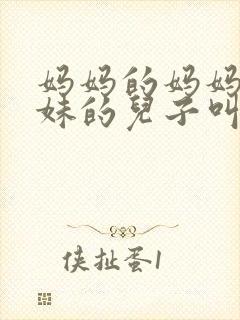 妈妈的妈妈
妹的兒子叫
侠扯蛋1